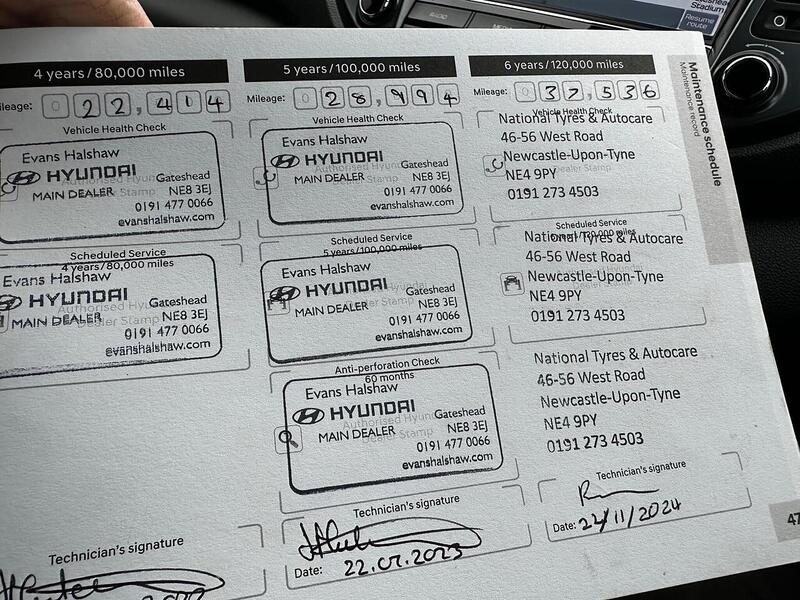 Stadium
Resume
route
Maintenance schedule
Maintenance record
4 years/80,000 miles
Mileage: 0 2 2 , 4 0 4
Vehicle Health Check
Evans Halshaw
HYUNDAI
MAIN DEALER
Gateshead
NE8 3EJ
0191 477 0066
evanshalshaw.com
Scheduled Service
4 years/80,000 miles
Evans Halshaw
HYUNDAI
MAIN DEALER
Gateshead
NE8 3EJ
0191 477 0066
evanshalshaw.com
Technician's signature
5 years/100,000 miles
Mileage: 0 2 8 , 9 9 4
Vehicle Health Check
Evans Halshaw
HYUNDAI
MAIN DEALER
Gateshead
NE8 3EJ
0191 477 0066
evanshalshaw.com
Scheduled Service
5 years/100,000 miles
Evans Halshaw
HYUNDAI
MAIN DEALER
Gateshead
NE8 3EJ
0191 477 0066
evanshalshaw.com
Anti-perforation Check
60 months
Evans Halshaw
HYUNDAI
MAIN DEALER
Gateshead
NE8 3EJ
0191 477 0066
evanshalshaw.com
Technician's signature
Date: 22.02.2023
6 years/120,000 miles
Mileage: 0 3 7 , 5 3 6
Vehicle Health Check
National Tyres & Autocare
46-56 West Road
Newcastle-Upon-Tyne
NE4 9PY
0191 273 4503
Scheduled Service
National Tyres & Autocare
46-56 West Road
Newcastle-Upon-Tyne
NE4 9PY
0191 273 4503
National Tyres & Autocare
46-56 West Road
Newcastle-Upon-Tyne
NE4 9PY
0191 273 4503
Technician's signature
Date: 22/11/2024
47